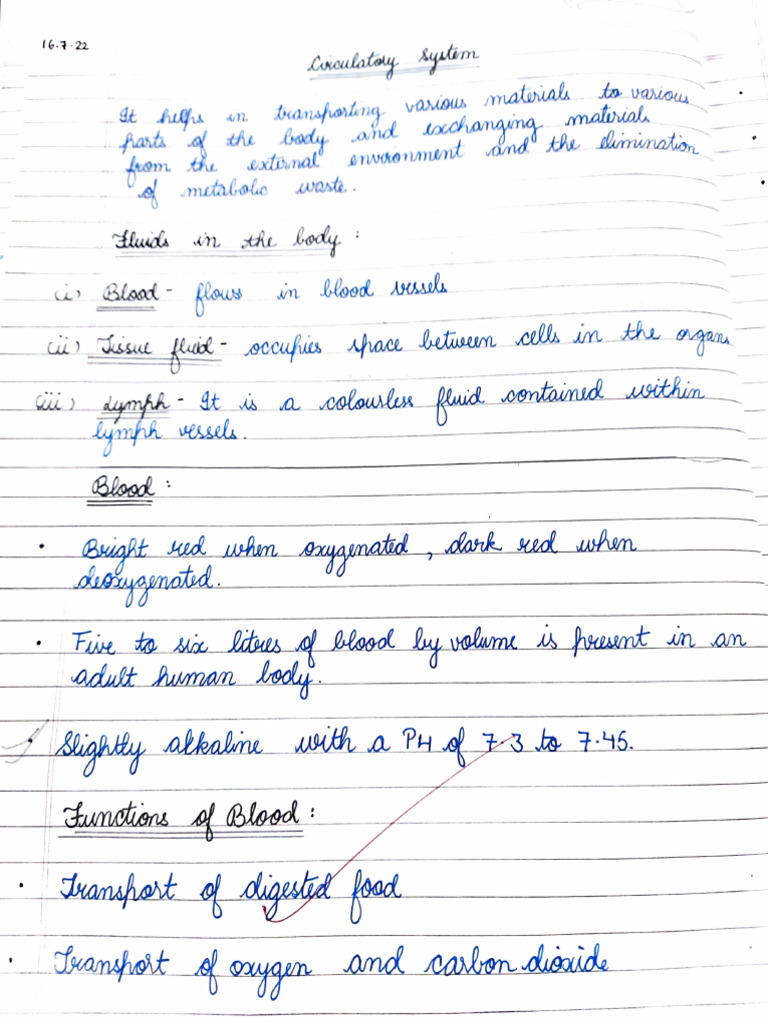 16.7.22
Circulatory System
It helps in transporting various materials to various
parts of the body and exchanging materials
from the external environment and the elimination
of metabolic waste.
Fluids in the body :
(i) Blood - flows in blood vessels
(ii) Tissue fluid - occupies space between cells in the organs
(iii) Lymph - It is a colourless fluid contained within
lymph vessels.
Blood :
• Bright red when oxygenated, dark red when
deoxygenated.
• Five to six litres of blood by volume is present in an
adult human body.
Slightly alkaline with a PH of 7.3 to 7.45.
Functions of Blood :
• Transport of digested food
• Transport of oxygen and carbon dioxide